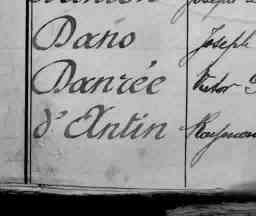 Dano Joseph
Danrée Victor
d'Antin Raymond